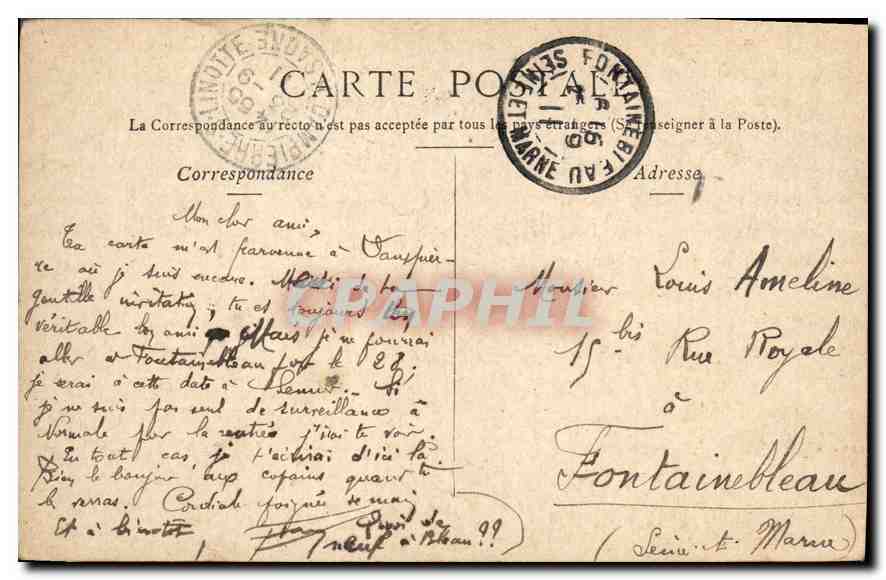 CARTE POSTALE
La Correspondance au recto n'est pas acceptée par tous les pays étrangers (Se renseigner à la Poste).
Correspondance
Mon cher ami,
Ta carte m'est parvenue à Dampier-
re où je suis encore. Merci de ta
gentille invitation ; tu es toujours un
véritable bon ami. Mais je ne pourrai
aller à Fontainebleau pour le 28.
je serai à cette date à Semur. Si
je ne suis pas seul de surveillance à
Normale pour la rentrée j'irai te voir.
En tout cas, je t'écrirai d'ici là.
Bien le bonjour aux copains quand tu
les verras. Cordiale poignée de main
Et à bientôt
Quoi de
neuf à Bleau ??
Adresse
Monsieur Louis Ameline
15 bis Rue Royale
à
Fontainebleau
(Seine-et-Marne)
FONTAINEBLEAU
SEINE ET MARNE
DAMPIERRE
LINOTTE
CPAPHIL